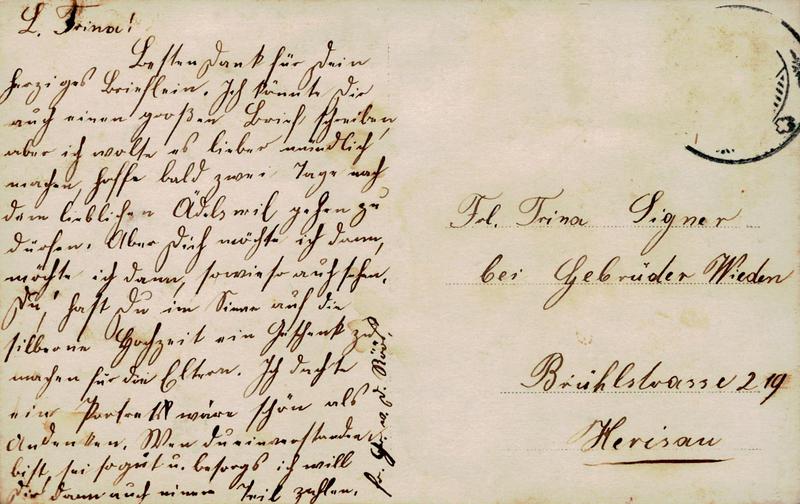 L. Trina!
Besten Dank für Dein
herziges Brieflein. Ich könnte Dir
auch einen großen Brief schreiben,
aber ich wolte es lieber mündlich
machen, hoffe bald zwei Tage nach
dem lieblichen Ädelswil gehen zu
dürfen. Aber Dich möchte ich dann,
möchte ich dann, sowieso auch sehen.
Du, hast Du im Sinne auf die
silberne Hochzeit ein Geschenk zu
machen für die Eltern. Ich dachte
ein Portrett wäre schön als
Andenken. Wen du einverstanden
bist, sei so gut u. besorgs ich will
Dir dann auch einen Teil zahlen.
Frl. Trina Signer
bei Gebrüder Wieden
Brühlstrasse 219
Herisau